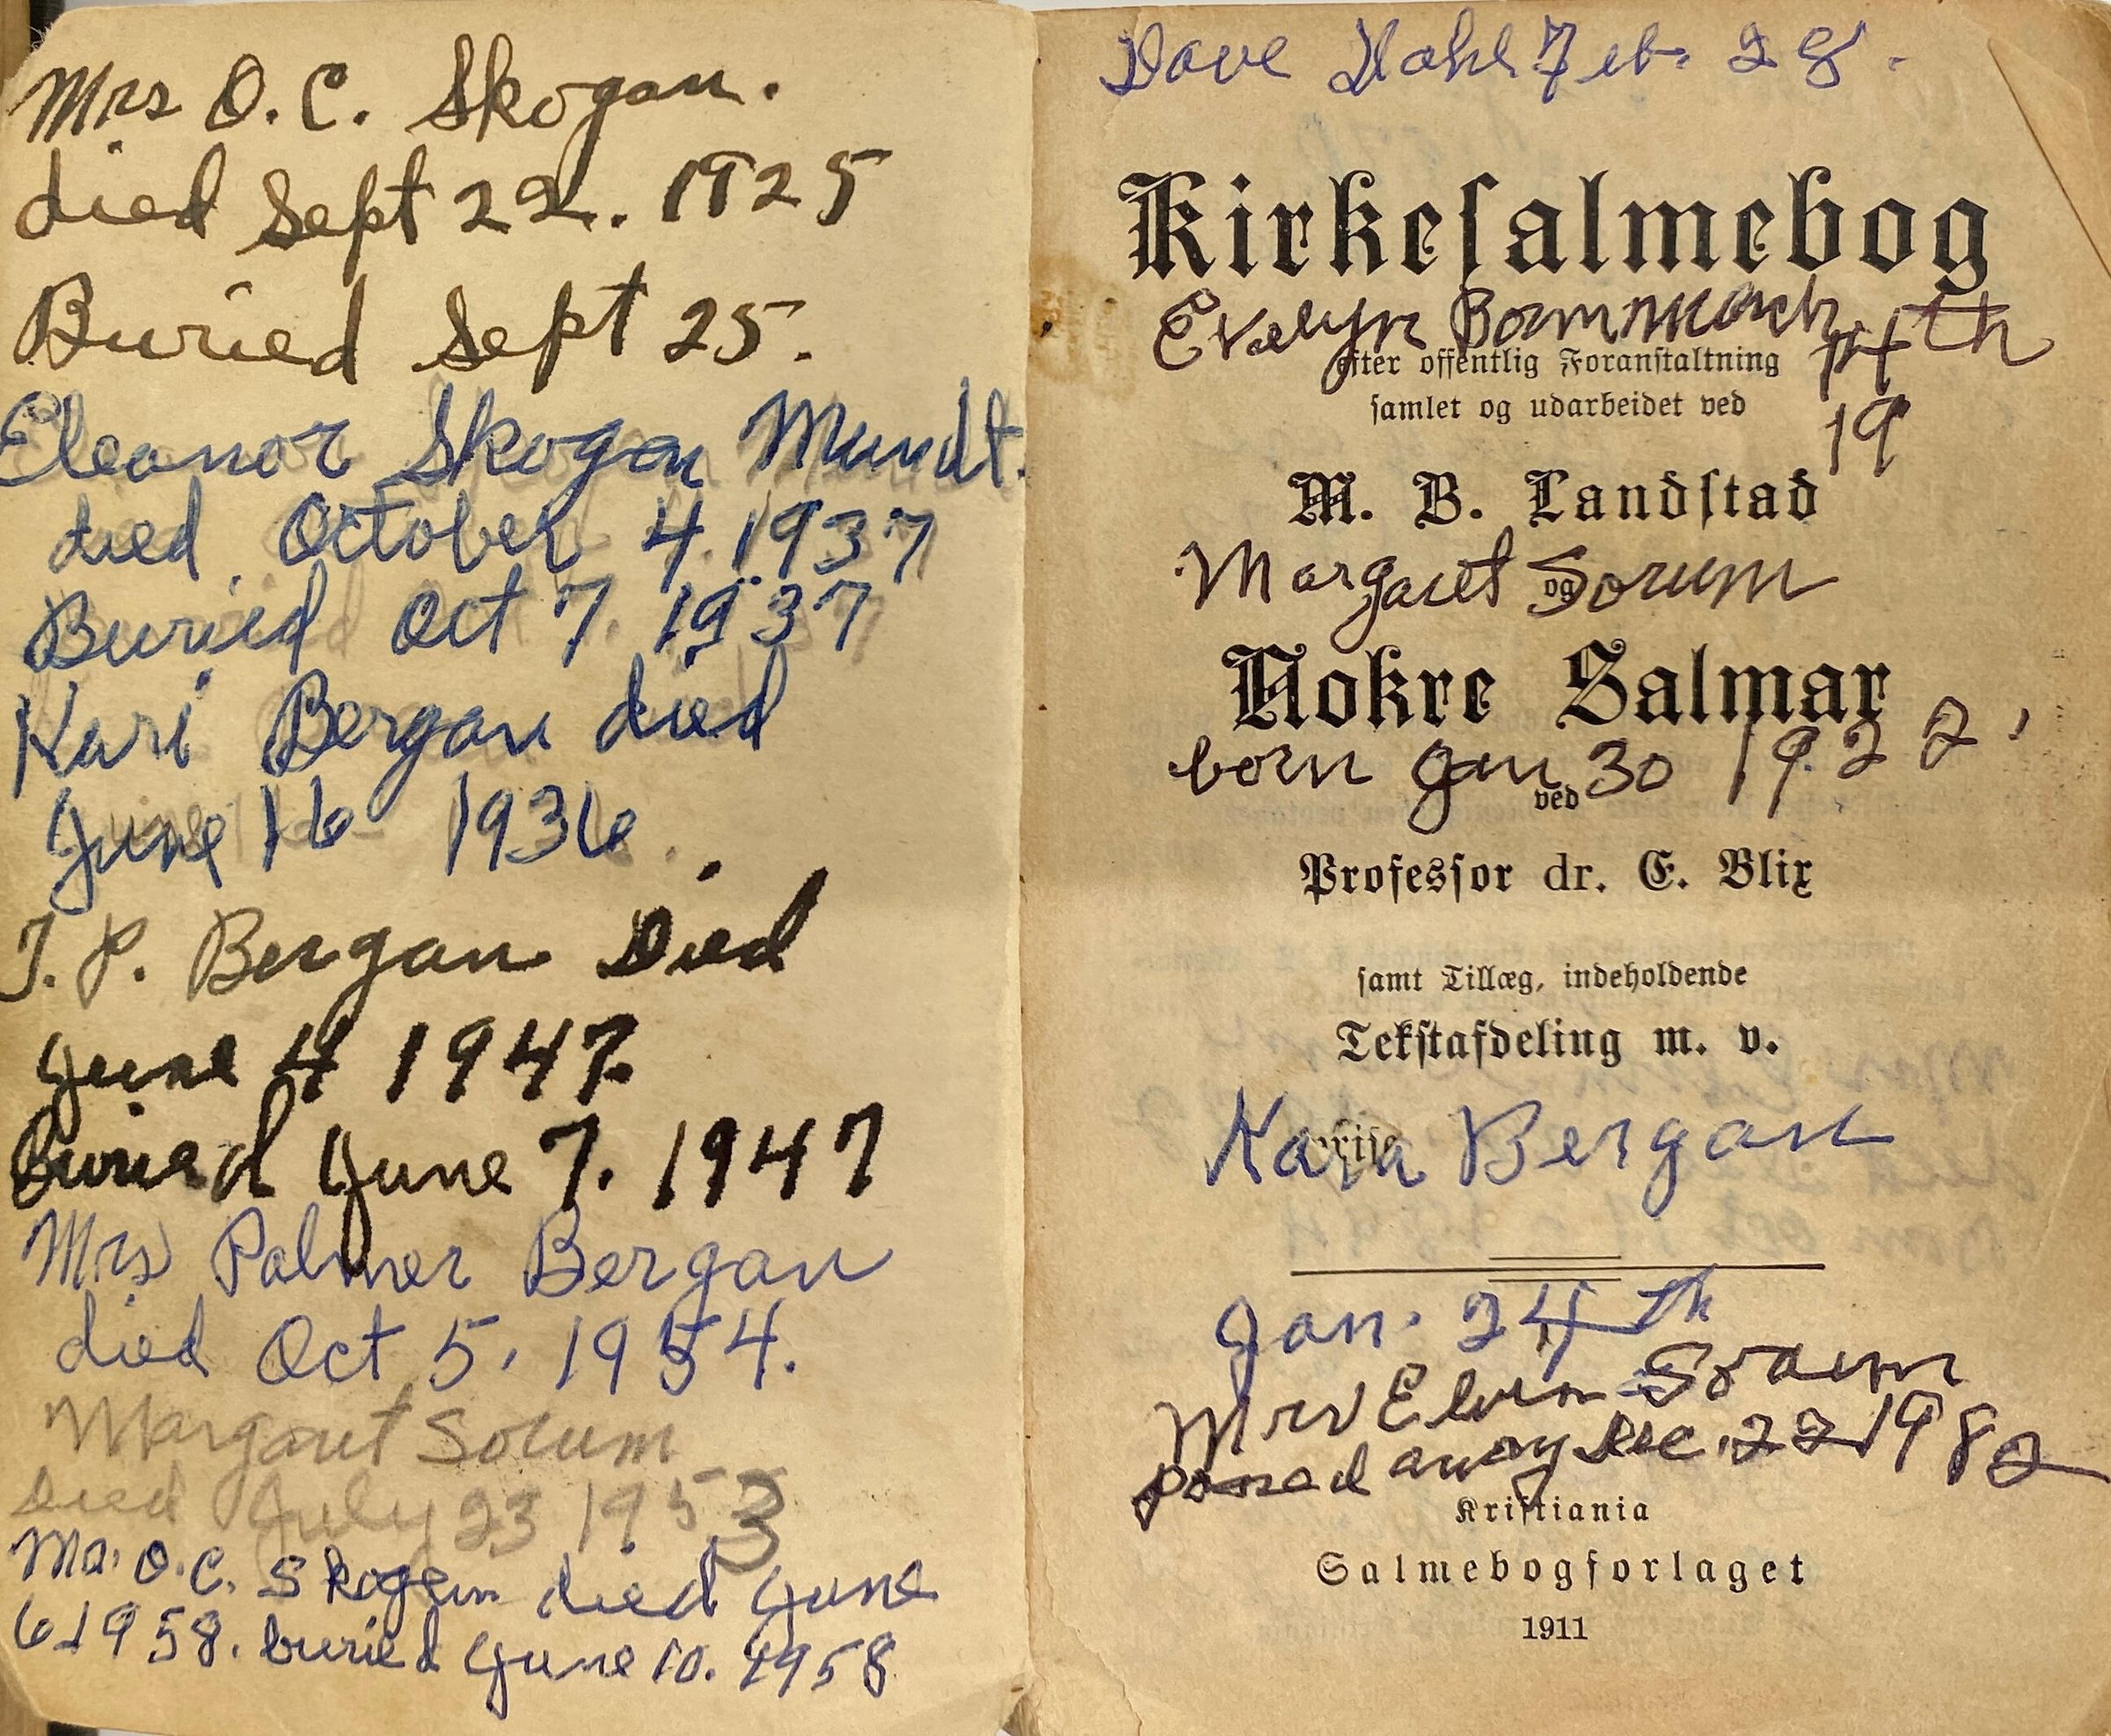 Mrs O. C. Skogan.
died Sept 22. 1925
Buried Sept 25.
Eleanor Skogan Mundt.
died October 4. 1937
Buried Oct 7. 1937
Kari Bergan died
June 16 1936.
T. P. Bergan Died
June 4 1947
Buried June 7. 1947
Mrs Palmer Bergan
died Oct 5, 1954.
Margaret Sorum
Died July 23 1953
Mr. O. C. Skogan died June
6 1958. buried June 10. 1958
Dave Dahl Feb. 28.
Kirkeſalmebog
Evelyn 14th
efter offentlig Foranſtaltning
ſamlet og udarbeidet ved
19
M. B. Landſtad
Margaret Sorum
og
Nokre Salmar
born Jan 30 1922.
ved
Profesſor dr. E. Blix
ſamt Tillæg, indeholdende
Tekſtafdeling m. v.
Kara Bergan
Jan. 24th
Mrs Elvin Sorum
passed away Dec. 22 1982
Kriſtiania
Salmebogforlaget
1911